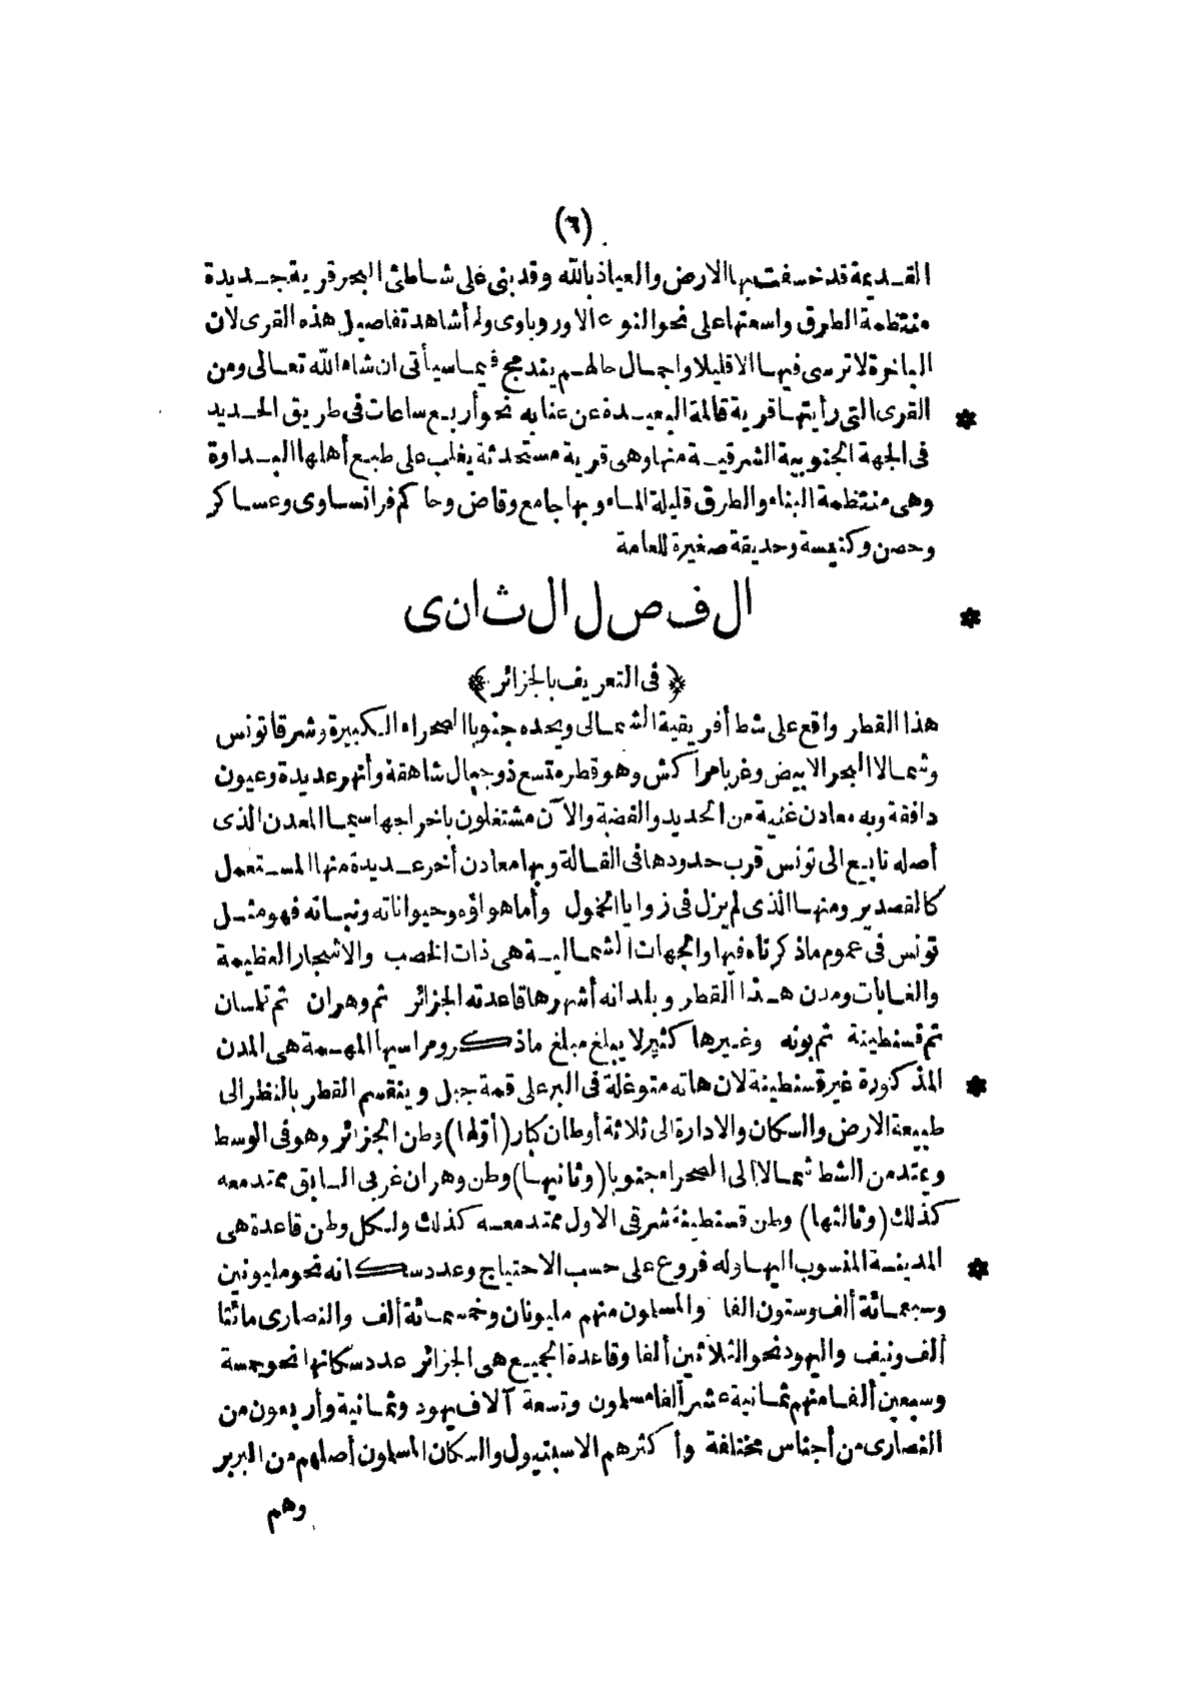 (٦)
القديمة قد خسفت بها الارض والعياذ بالله وقد بنى على شاطئ البحر قرية جديدة
منتظمة الطرق واسعتها على نحو النوع الاورو باوى ولم أشاهد تفاصيل هذه القرى لان
الباخرة لا ترسى فيها الا قليلا واجمال حالهم يندمج فيما سيأتى ان شاء الله تعالى ومن
* القرى التى رأيتها قرية قالمة البعيدة عن عنابه نحو أربع ساعات فى طريق الحديد
فى الجهة الجنوبية الشرقية منها وهى قرية مستحدثة يغلب على طبع أهلها البداوة
وهى منتظمة البناء والطرق قليلة الماء وبها جامع وقاض وحاكم فرانساوى وعساكر
وحصن وكنيسة وحديقة صغيرة للعامة
* الفصل الثانى
﴿فى التعريف بالجزائر﴾
هذا القطر واقع على شط أفريقية الشمالى ويحده جنوبا الصحراء الكبيرة وشرقا تونس
وشمالا البحر الابيض وغربا مراكش وهو قطر متسع ذو جبال شاهقة وأنهر عديدة وعيون
دافقة وبه معادن غنية من الحديد والفضة والآن مشتغلون باخراجها سيما المعدن الذى
أصله تابع الى تونس قرب حدودها فى القالة وبها معادن أخر عديدة منها المستعمل
كالقصدير ومنها الذى لم يزل فى زوايا الخمول وأما هواؤه وحيواناته ونباته فهو مثل
تونس فى عموم ماذكرناه فيها والجهات الشمالية هى ذات الخصب والاشجار العظيمة
والغابات ومدن هذا القطر وبلدانه أشهرها قاعدته الجزائر ثم وهران ثم تلمسان
ثم قسنطينة ثم بونه وغيرها كثير لا يبلغ مبلغ ماذكر ومراسيها المهمة هى المدن
* المذكورة غير قسنطينة لان هاته متوغلة فى البر على قمة جبل وينقسم القطر بالنظر الى
طبيعة الارض والسكان والادارة الى ثلاثة أوطان كبار (أولها) وطن الجزائر وهو فى الوسط
ويمتد من الشط شمالا الى الصحراء جنوبا (وثانيها) وطن وهران غربى السابق ممتد معه
كذلك (وثالثها) وطن قسنطينة شرقى الاول ممتد معه كذلك ولكل وطن قاعدة هى
* المدينة المنسوب اليها وله فروع على حسب الاحتياج وعدد سكانه نحو مليونين
وسبعمائة ألف وستون الفا والمسلمون منهم مليونان وخمسمائة ألف والنصارى مائتا
ألف ونيف واليهود نحو الثلاثين ألفا وقاعدة الجميع هى الجزائر عدد سكانها نحو خمسة
وسبعين ألفا منهم ثمانية عشر آلفا مسلمون وتسعة آلاف يهود وثمانية وأربعون من
النصارى من أجناس مختلفة وأكثرهم الاسبنيول والسكان المسلمون أصلهم من البربر
وهم